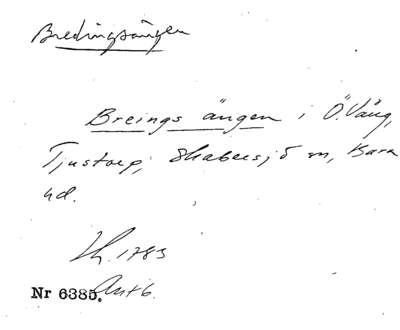 Bredingsängen
Breings ängen i Ö. Vång,
Tjustorp, Skabersjö sn, Bara
hd.
1783
Nr 6385. Akt 6.